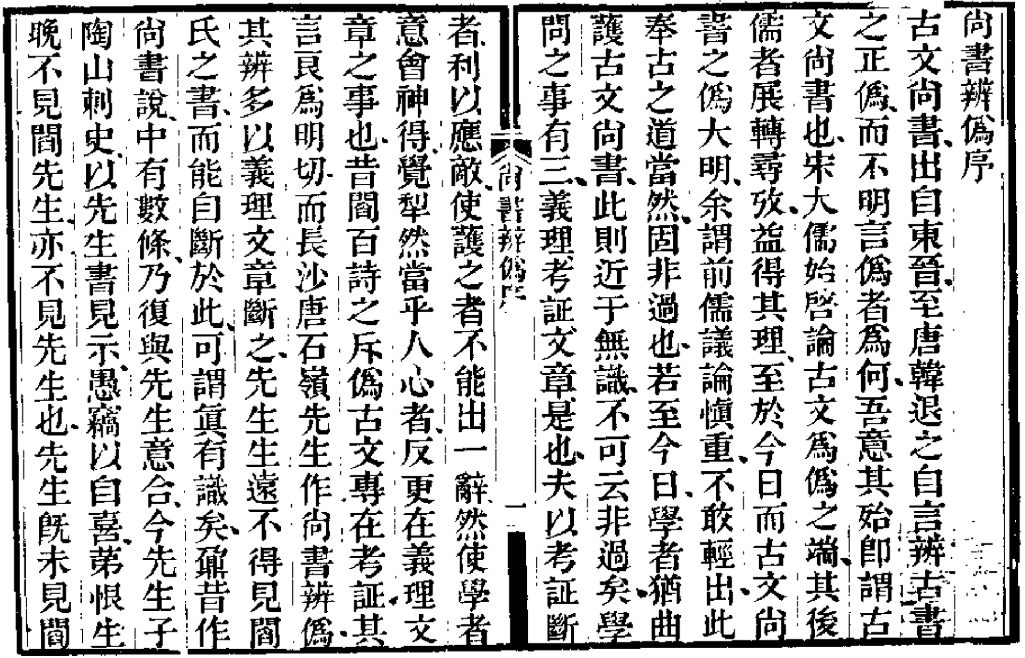 尚書辨僞序
古文尚書出自東晉至唐韓退之自言辨古書
之正僞而不明言僞者爲何吾意其殆卽謂古
文尚書也宋大儒始啓論古文爲僞之端其後
儒者展轉尋攷益得其理至於今日而古文尚
書之僞大明余謂前儒議論愼重不敢輕出此
奉古之道當然固非過也若至今日學者猶曲
護古文尚書此則近于無識不可云非過矣學
問之事有三義理考証文章是也夫以考証斷
尚書辨僞序
一
者利以應敵使護之者不能出一辭然使學者
意會神得覺犁然當乎人心者反更在義理文
章之事也昔閻百詩之斥僞古文專在考証其
言良爲明切而長沙唐石嶺先生作尚書辨僞
其辨多以義理文章斷之先生生遠不得見閻
氏之書而能自斷於此可謂眞有識矣鼐昔作
尚書說中有數條乃復與先生意合今先生子
陶山刺史以先生書見示愚竊以自喜苐恨生
晚不見閻先生亦不見先生也先生旣未見閻